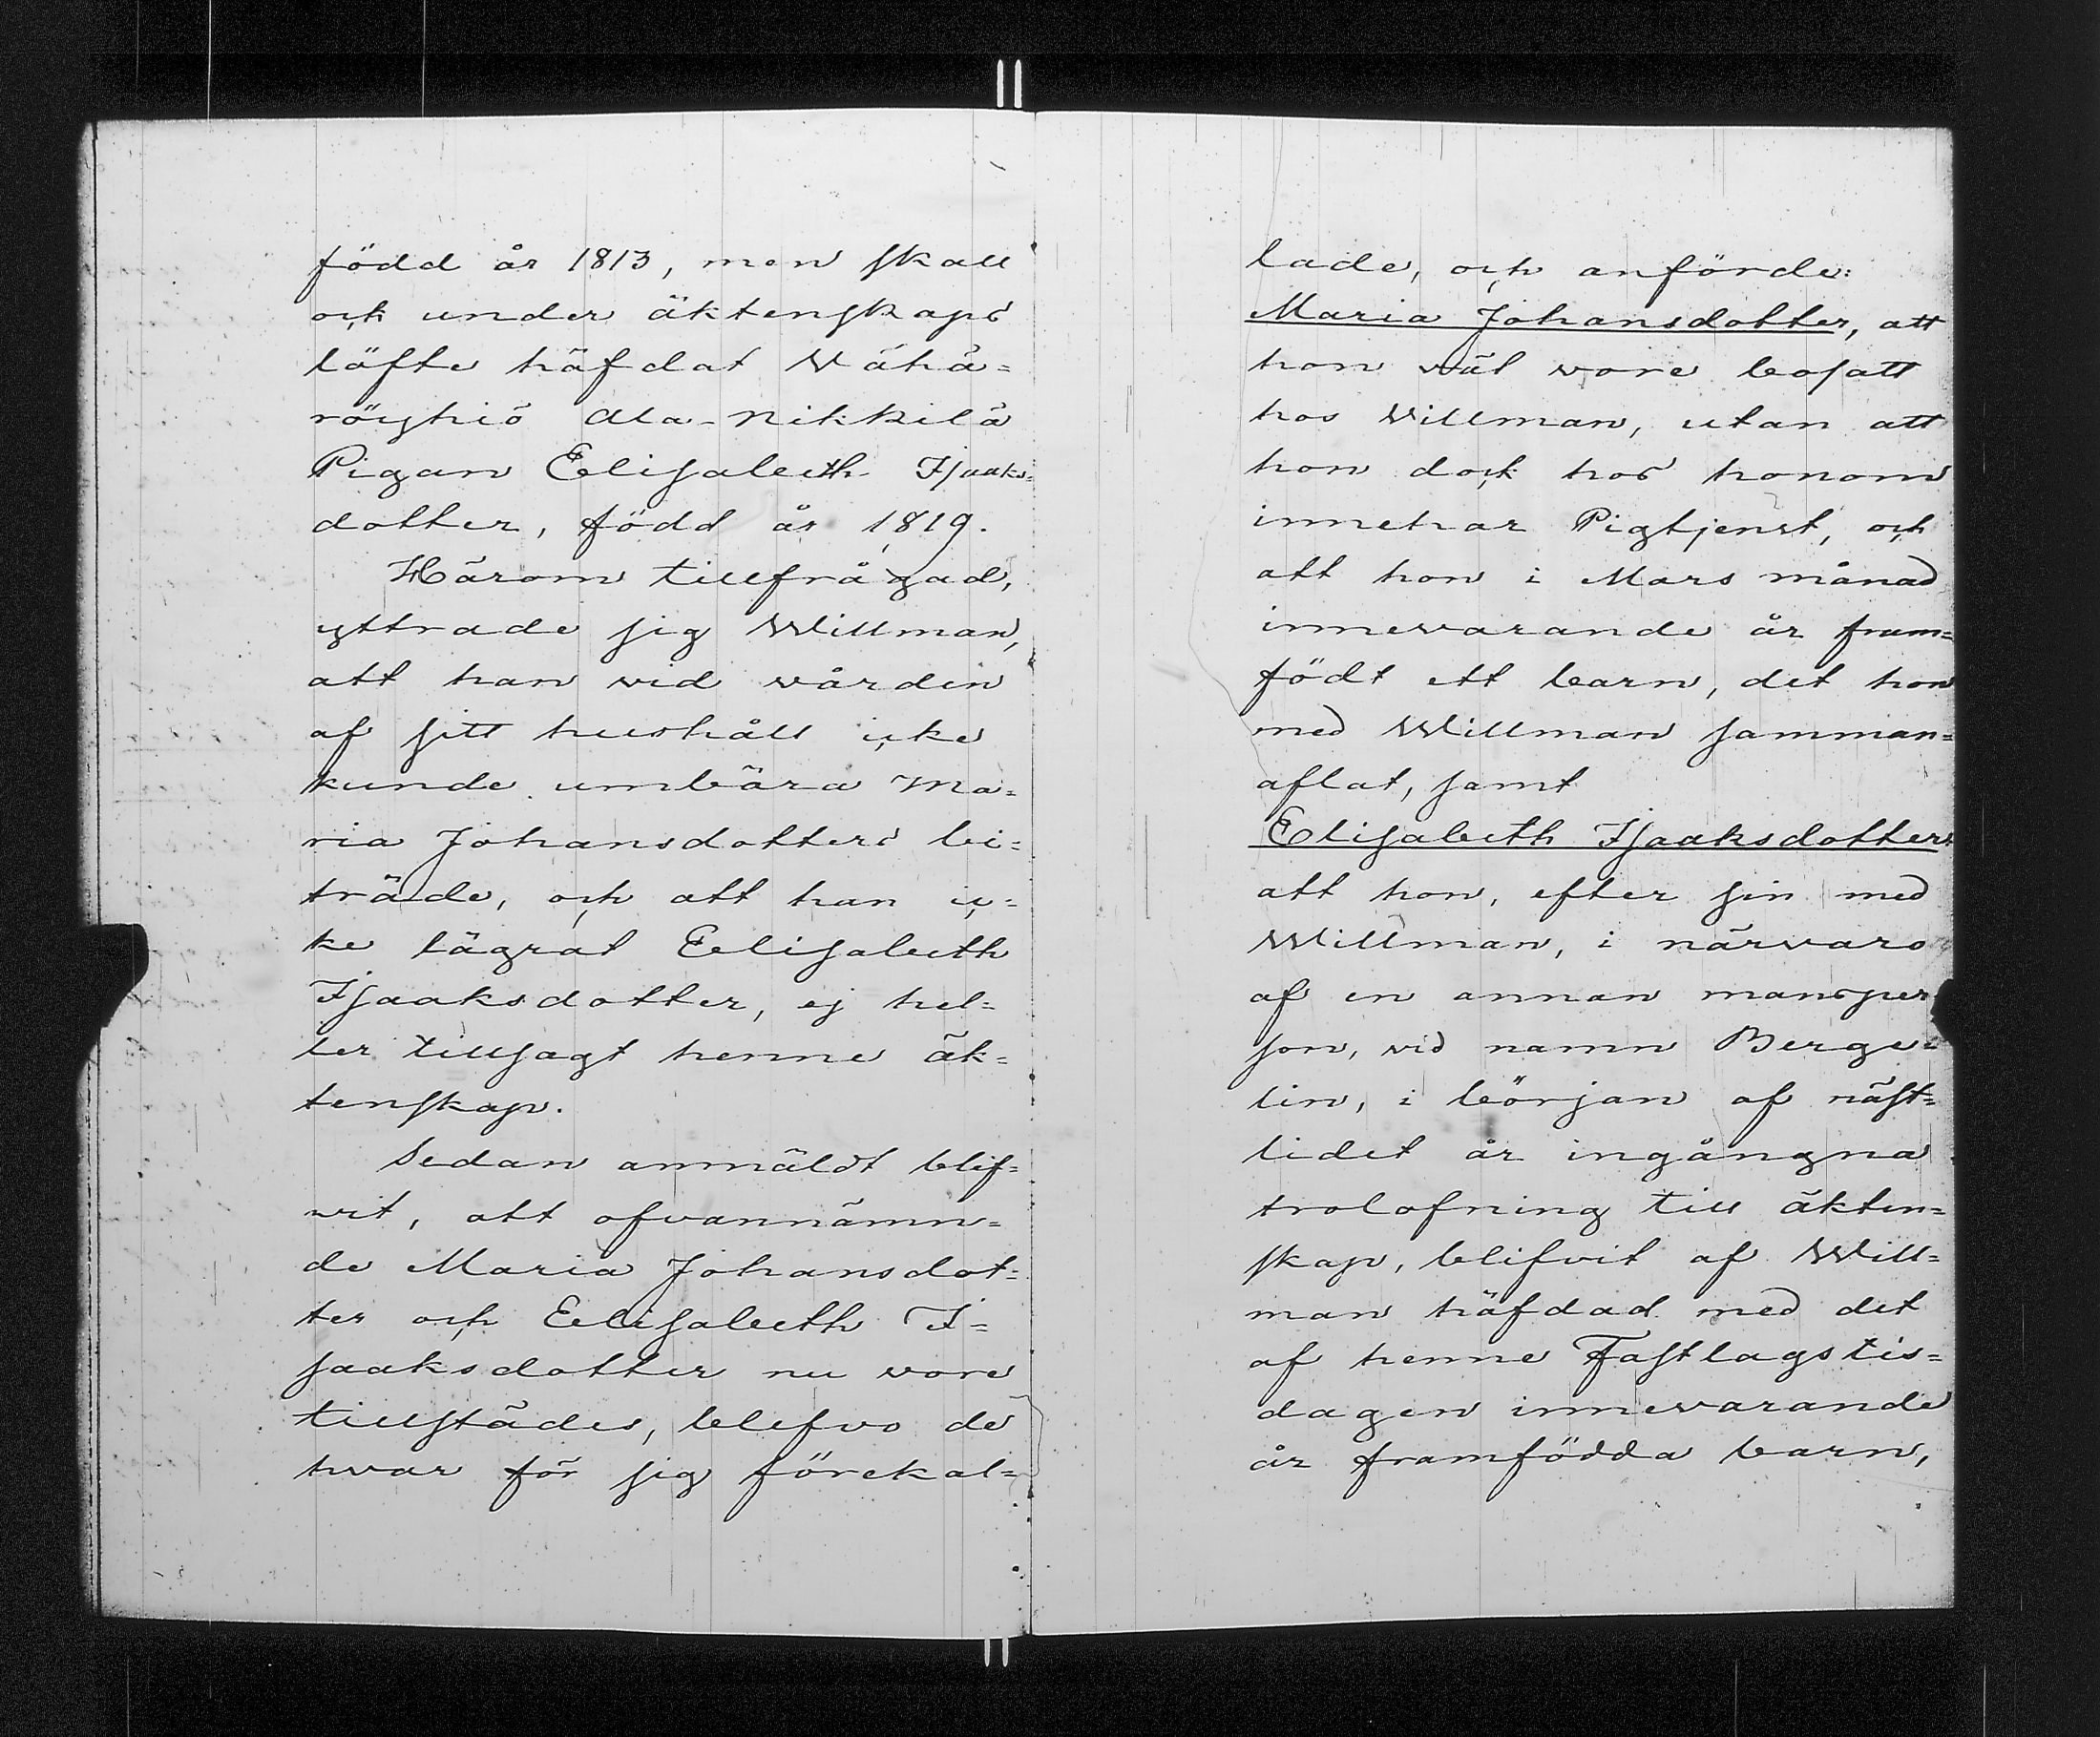 född år 1813, men skall
ock under äktenskaps
löfte häfdat Vähä=
röyhiö Ala-Nikkilä
Pigan Elisabeth Isaaks=
dotter, född år 1819.
Härom tillfrågad,
yttrade sig Willman,
att han vid vården
af sitt hushåll icke
kunde umbära Ma=
ria Johansdotters bi=
träde, och att han ic=
ke lägrat Elisabeth
Isaaksdotter, ej hel=
ler tillsagt henne äk=
tenskap.
Sedan anmäldt blif=
vit, att ofvannämn=
de Maria Johansdot=
ter och Elisabeth I=
saaksdotter nu vore
tillstädes, blefvo de
hvar för sig förekal=
lade, och anförde:
Maria Johansdotter, att
hon väl vore bosatt
hos Willman, utan att
hon dock hos honom
innehar Pigtjenst, och
att hon i Mars månad
innevarande år fram=
födt ett barn, det hon
med Willman samman=
aflat, samt
Elisabeth Isaaksdotter,
att hon, efter sin med
Willman, i närvaro
af en annan mansper
son, vid namn Berge=
lin, i början af näst=
lidet år ingångna
trolofning till äkten=
skap, blifvit af Will=
man häfdad med det
af henne Fastlagstis=
dagen innevarande
år framfödda barn,